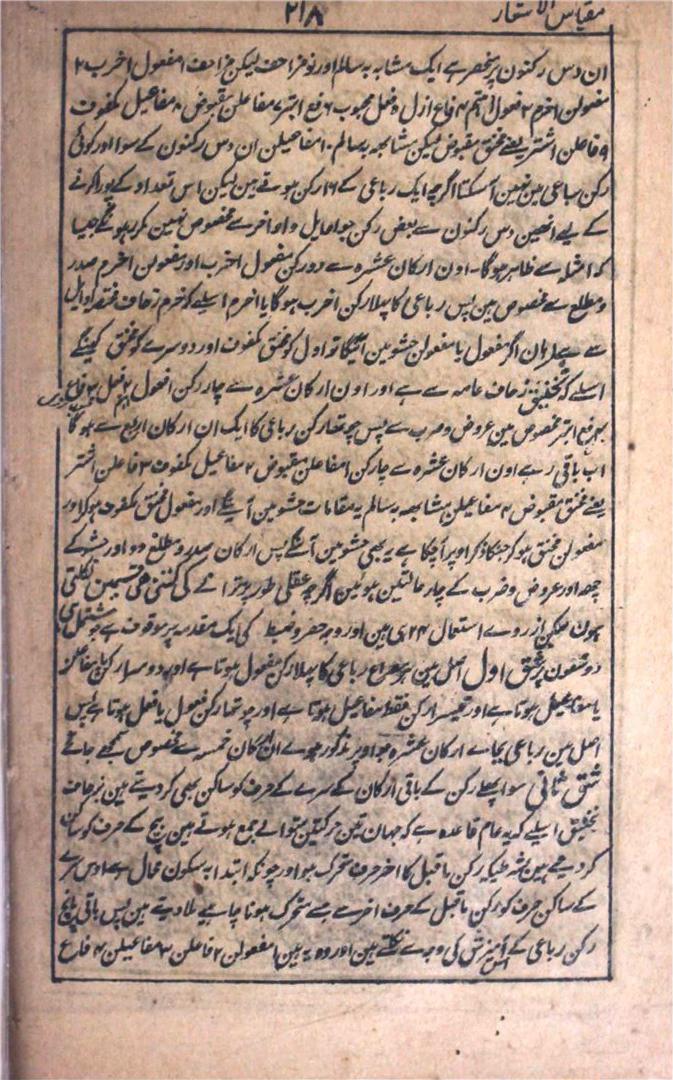 مقیاس الاشعار
۲۱۸
ان دس رکنون پر منحصر ہے ایک مشابہ بہ سالم اور نو مزاحف لیکن مزاحف ۱ مفعول اخرب ۲
مفعولن اخرم ۳ فعول اہتم ۴ فاع ازل ۵ فعل مجبوب ۶ فع ابتر ۷ مفاعلن مقبوض ۸ مفاعیل مکفوف
۹ فاعلن اشتر یعنے مخنق مقبوض لیکن مشابہہ بہ سالم ۱۰ مفاعیلن ان دس رکنون کے سوا اور کوئی
رکن رباعی مین نہین آسکتا اگرچہ ایک رباعی کے ۱۶ رکن ہوتے ہین لیکن اس تعداد کے پورا کرنے
کے لیے انھین دس رکنون سے بعض رکن جو اوایل و اواخر سے مخصوص نہین مکرر ہونگے جیسا
کہ امثلہ سے ظاہر ہوگا۔ اون ارکان عشرہ سے دو رکن مفعول اخرب اور مفعولن اخرم صدر
و مطلع سے مخصوص ہین پس رباعی کا پہلا رکن اخرب ہوگا یا اخرم اسلیے کہ خرم زحاف مختص اوایل
سے ہے ہان اگر مفعول یا مفعولن حشو مین آئیگا تو اول کو مخنق مکفوف اور دوسرے کو مخنق کہینگے
اسلیے کہ تخنیق زحاف عامہ سے ہے اور اون ارکان عشرہ سے چار رکن ۱ فعول اہتم ۲ فعل ۳ فاع
۴ فع ابتر مخصوص ہین عروض و ضرب سے پس چوتھا رکن رباعی کا ایک ان ارکان اربعہ سے ہوگا
اب باقی رہے اون ارکان عشرہ سے چار رکن ۱ مفاعلن مقبوض ۲ مفاعیل مکفوف ۳ فاعلن اشتر
یعنے مخنق مقبوض ۴ مفاعیلن مشابہہ بہ سالم یہ مقامات حشو مین آئینگے اور مفعول مخنق مکفوف ہوکر اور
مفعولن مخنق ہوکر جنکا ذکر اوپر آچکا ہے یہ بھی حشو مین آئینگے پس ارکان صدر و مطلع دو اور حشو کے
چھہ اور عروض و ضرب کے چار حالتین ہوئین اگرچہ عقلی طور پر ترانے کی کتنی ہی قسمین نکلتی
ہون لیکن از روے استعمال ۲۴ ہی ہین اور وجہ حصر و ضبط کی ایک مقدمہ پر موقوف ہے جو مشتمل ہی
دو شقون پر شق اول اصل مین ہر مصراع رباعی کا پہلا رکن مفعول ہوتا ہے اور دوسرا رکن یا مفاعلن
یا مفاعیل ہوتا ہے اور تیسرا رکن فقط مفاعیل ہوتا ہے اور چوتھا رکن فعول یا فعل ہوتا ہے پس
اصل مین رباعی بجاے ارکان عشرہ جو اوپر مذکور ہوے ان ارکان خمسہ سے مخصوص سمجھے جاتے
شق ثانی سوا پہلے رکن کے باقی ارکان کے سرے کے حرف کو ساکن بھی کر دیتے ہین بزحاف
تخنیق اسلیے کہ یہ عام قاعدہ ہے کہ جہان تین حرکتین متوالی جمع ہوتے ہین بیچ کے حرف کو ساکن
کر دیتے ہین بشرطیکہ رکن ماقبل کا اخر حرف متحرک ہو اور چونکہ ابتدا بہ سکون محال ہے اوس سرے
کے ساکن حرف کو رکن ماقبل کے حرف اخر سے جسے متحرک ہونا چاہیے ملا دیتے ہین پس باقی پانچ
رکن رباعی کے اس آمیزش کی وجہ سے نکلتے ہین اور وہ یہ ہین ۱ مفعولن ۲ فاعلن ۳ مفاعیلن ۴ فاع